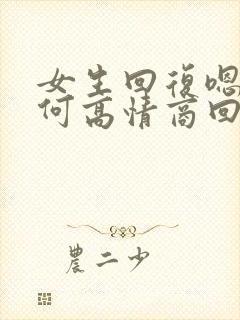 女生回復嗯
何高情商回
農二少